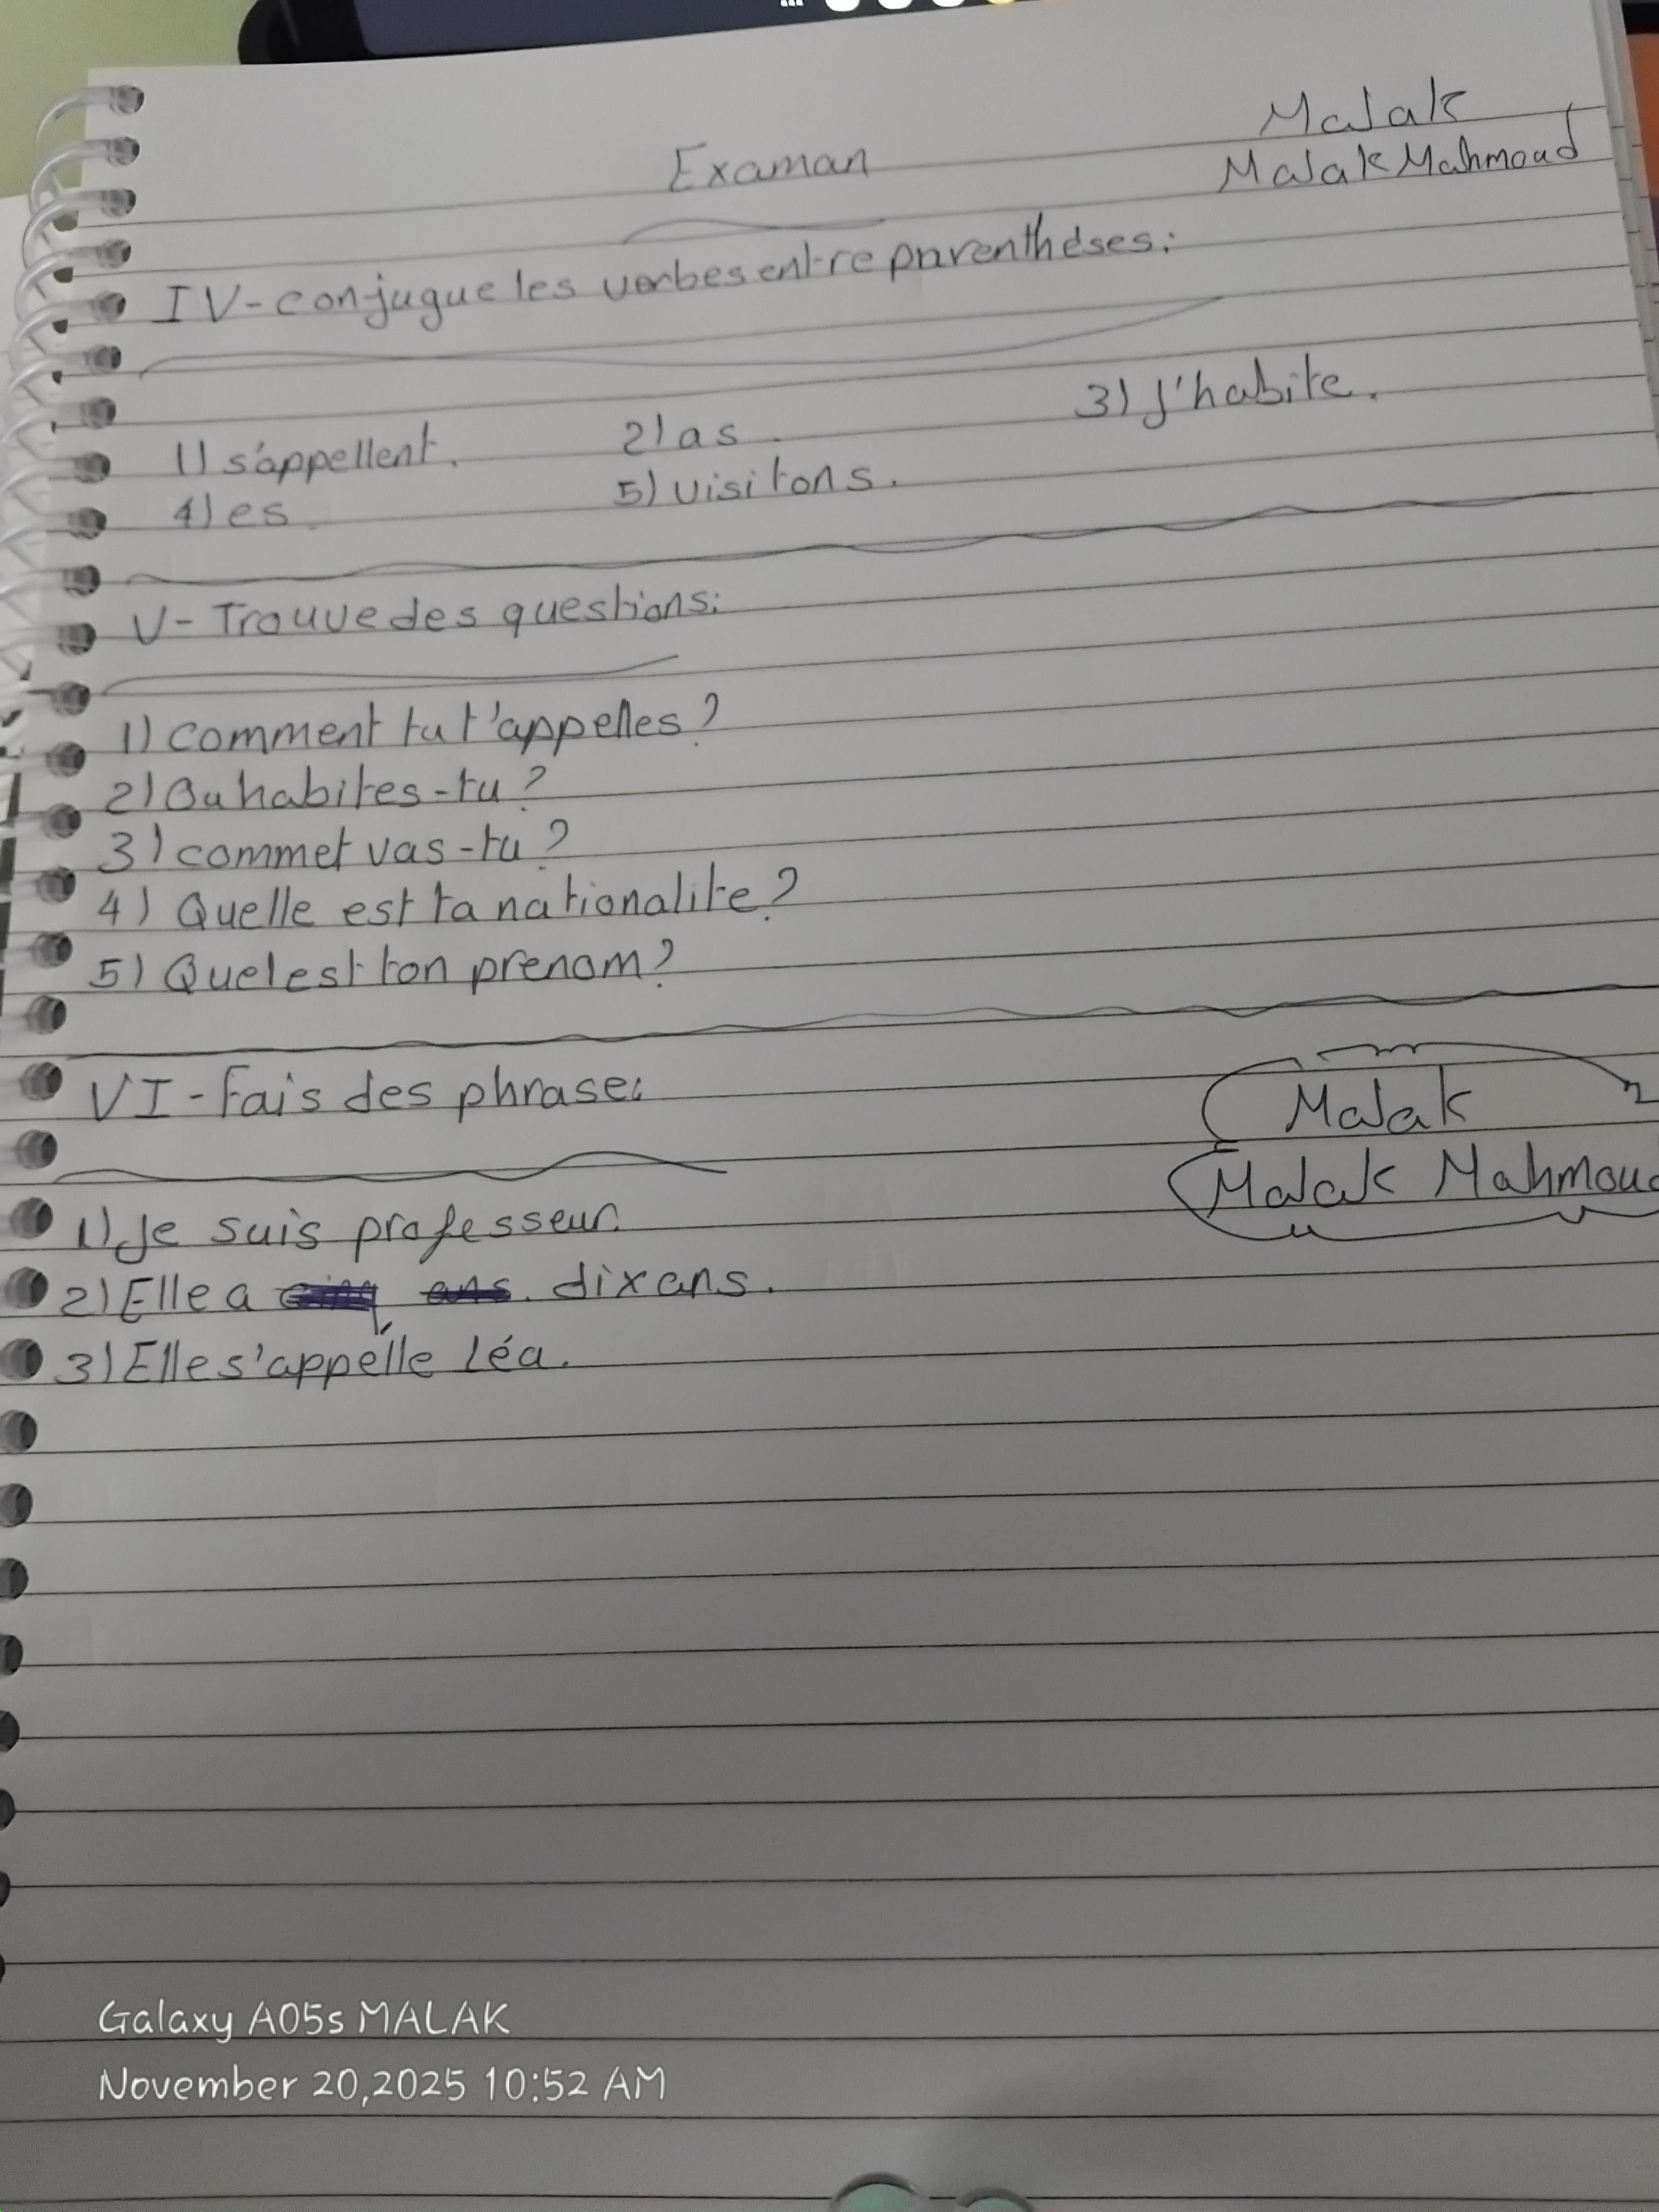 Malak
Examan
Malak Mahmoud
IV-conjugue les verbes entre parenthéses:
1) s'appellent. 2) as. 3) J'habite.
4) es. 5) visitons.
V- Trouve des questions:
1) comment tu t'appelles?
2) Ou habites-tu?
3) commet vas-tu?
4) Quelle est ta nationalite?
5) Quel est ton prenom?
VI-Fais des phrase:
Malak
Malak Mahmoud
1) Je suis professeur.
2) Elle a cinq ans. dix ans.
3) Elle s'appelle Léa.
Galaxy A05s MALAK
November 20,2025 10:52 AM